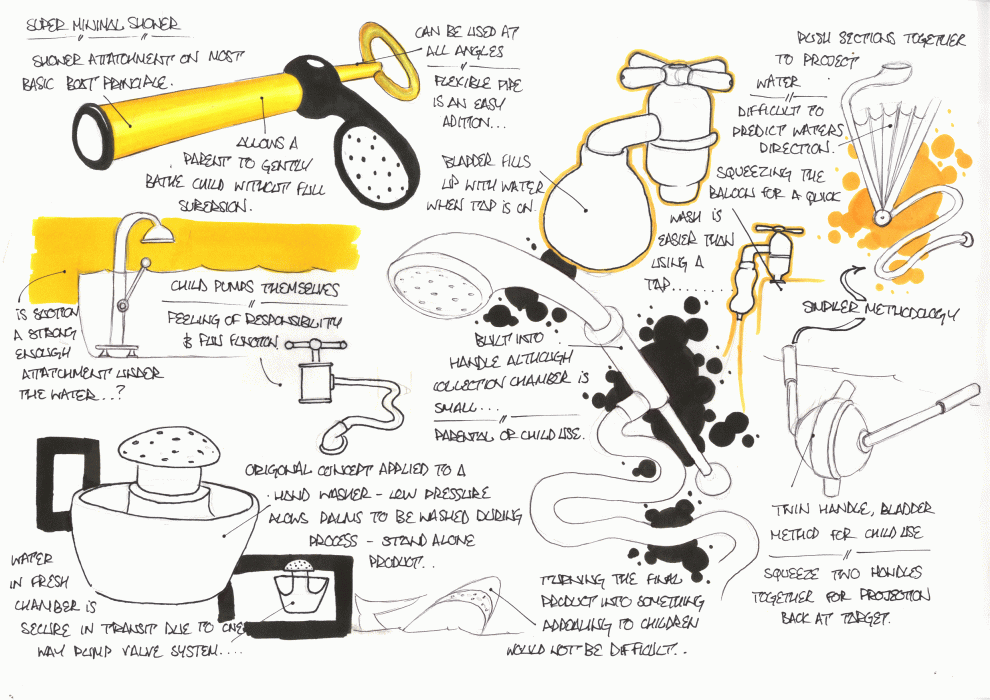 SUPER MINIMAL SHOWER
SHOWER ATTATCHMENT ON MOST
BASIC BOAT PRINCIPLE.
CAN BE USED AT
ALL ANGLES
FLEXIBLE PIPE
IS AN EASY
ADITION...
ALLOWS A
PARENT TO GENTLY
BATHE CHILD WITHOUT FULL
SUBERSION.
BLADDER FILLS
UP WITH WATER
WHEN TAP IS ON.
PUSH SECTIONS TOGETHER
TO PROJECT
WATER
DIFFICULT TO
PREDICT WATERS
DIRECTION.
SQUEEZING THE
BALOON FOR A QUICK
WASH IS
EASIER THAN
USING A
TAP........
SIMPLER METHODOLOGY
IS SUCTION
A STRONG
ENOUGH
ATTATCHMENT UNDER
THE WATER...?
CHILD PUMPS THEMSELVES
FEELING OF RESPONSIBILITY
& FUN FUNCTION
BUILT INTO
HANDLE ALTHOUGH
COLLECTION CHAMBER IS
SMALL...
PARENTAL OR CHILD USE.
ORIGONAL CONCEPT APPLIED TO A
HAND WASHER - LOW PRESSURE
ALOWS PALMS TO BE WASHED DURING
PROCESS - STAND ALONE
PRODUCT..
WATER
IN FRESH
CHAMBER IS
SECURE IN TRANSIT DUE TO ONE
WAY PUMP VALVE SYSTEM....
TURNING THE FINAL
PRODUCT INTO SOMETHING
APPEALING TO CHILDREN
WOULD NOT BE DIFFICULT..
TWIN HANDLE, BLADDER
METHOD FOR CHILD USE
SQUEEZE TWO HANDLES
TOGETHER FOR PROJECTION
BACK AT TARGET.